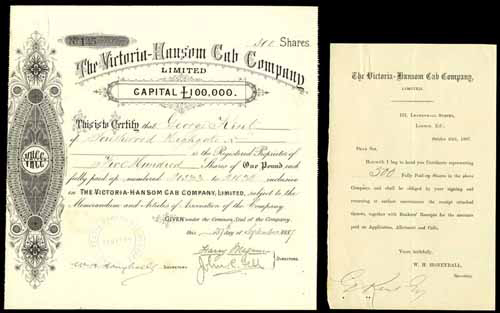 No 135
500 Shares.
The Victoria-Hansom Cab Company,
LIMITED
CAPITAL £100,000.
This is to Certify that George Kent
of Southwood Highgate N
is the Registered Proprietor of
Five Hundred Shares of One Pound each
fully paid up, numbered to inclusive
IN THE VICTORIA-HANSOM CAB COMPANY, LIMITED, subject to the
Memorandum and Articles of Association of the Company
GIVEN under the Common Seal of the Company,
this 23 day of September 1887
SECRETARY
DIRECTORS
The Victoria-Hansom Cab Company,
LIMITED.
London, E.C.
October 1887.
Dear Sir
Herewith I beg to hand you Certificate representing
500 Fully Paid-up Shares in the above
Company, and shall be obliged by your signing and
returning at earliest convenience the receipt attached
thereto, together with Bankers' Receipts for the amounts
paid on Application, Allotment and Calls.
Yours faithfully,
W. H. HONEYBALL,
Secretary.
G Kent Esq